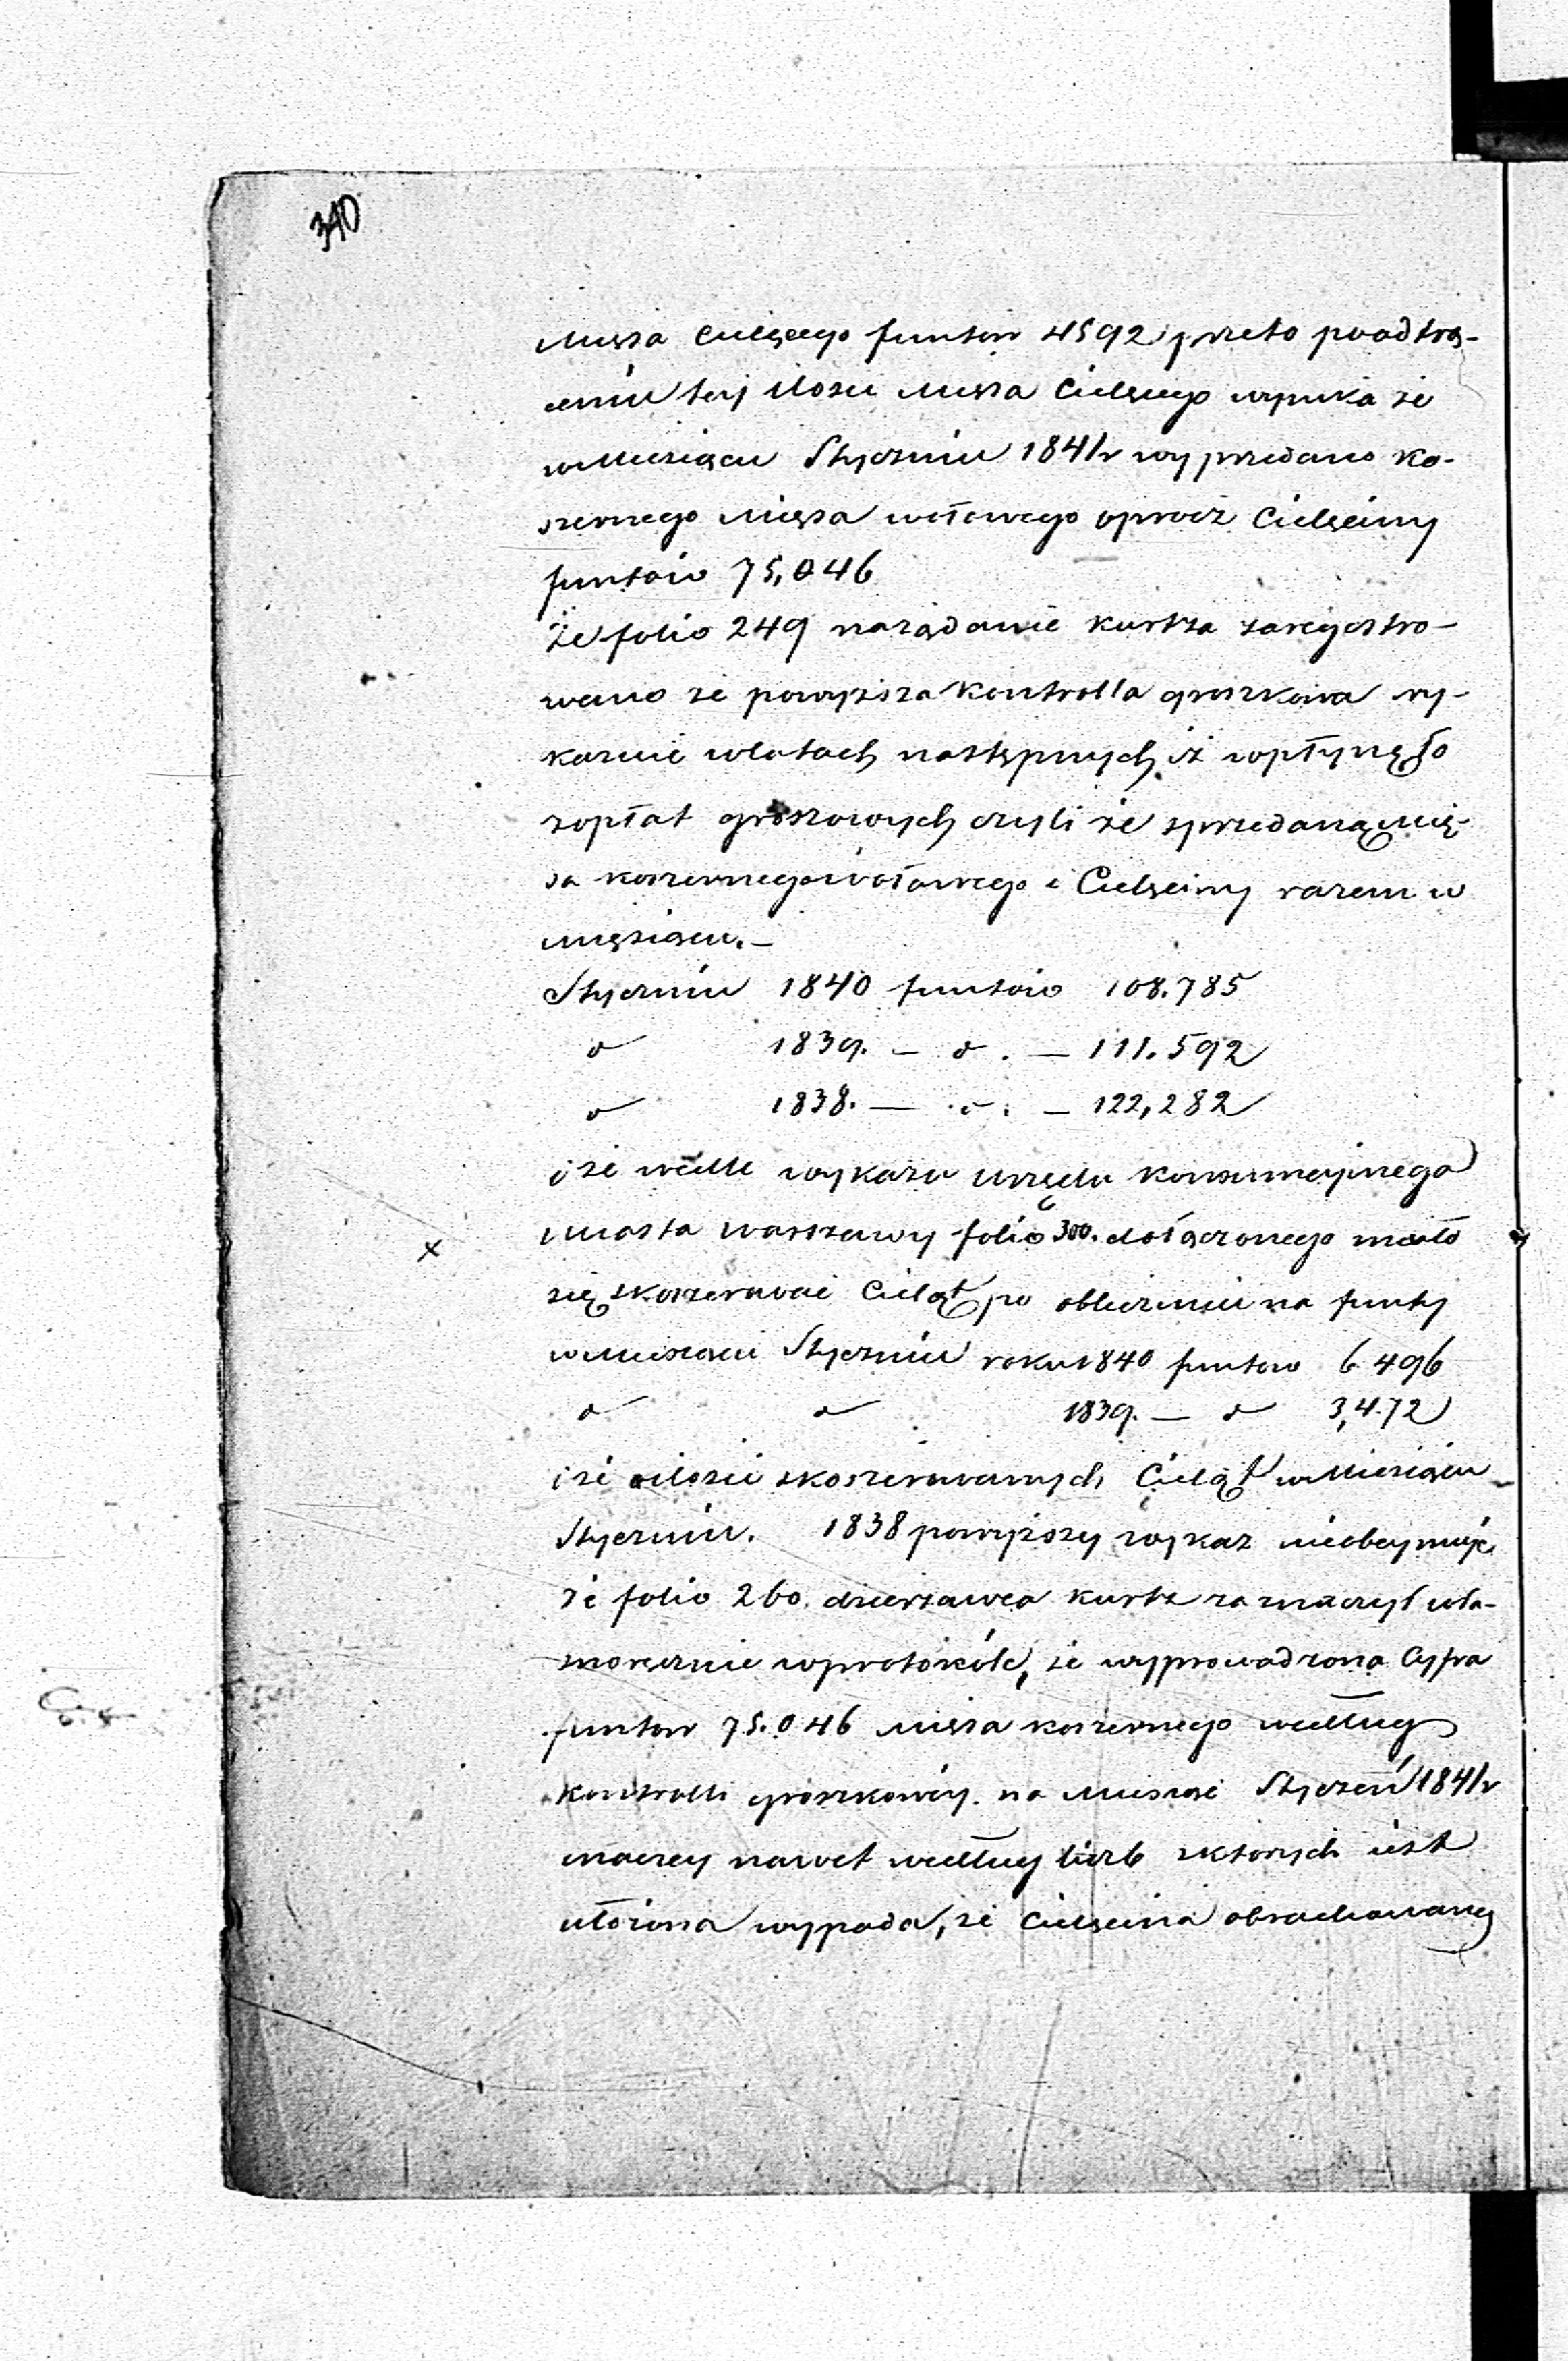 340
mięsa cielęcego funtów 4592 przeto po odtrą-
ceniu tej ilości mięsa Cielęcego wynika że
w Miesiącu Styczniu 1841 r wyprzedano ko-
szernego mięsa wołowego oprócz Cielęciny
funtów 75,046
Że folio 249 na żądanie Kurtza zaregestro-
wano że powyższa Kontrolla groszkowa wy-
kazuie w latach następnych iż wpłynęło
z opłat groszowych czyli że sprzedaną mię-
sa koszernego wołowego i Cielęciny razem w
miesiącu. —
Styczniu 1840 funtów 108.785
d 1839. — d . — 111.592
d 1838. — d . — 122,282
i że wedle wykazu Urzędu Konsumcyjnego
miasta Warszawy folio 300. dołączonego miało
się skoszerować Cieląt po obliczeniu na funty
w Miesiącu Styczniu roku 1840 funtów 6 496
d d 1839. — d 3,472
i że ilości skoszerowanych Cieląt w Miesiącu
Styczniu. 1838 powyższy wykaz nieobeymuje
że folio 260. dzierżawca Kurtz zaznaczył wła-
snoręcznie w protokóle, że wyprowadzona Cyfra
funtów 75.046 mięsa koszernego według
Kontrolli groszkowéy. na Miesiąc Styczeń 1841 r
inaczey nawet według liczb z których iest
ułożona wypada, że Cielęcina obrachowaną